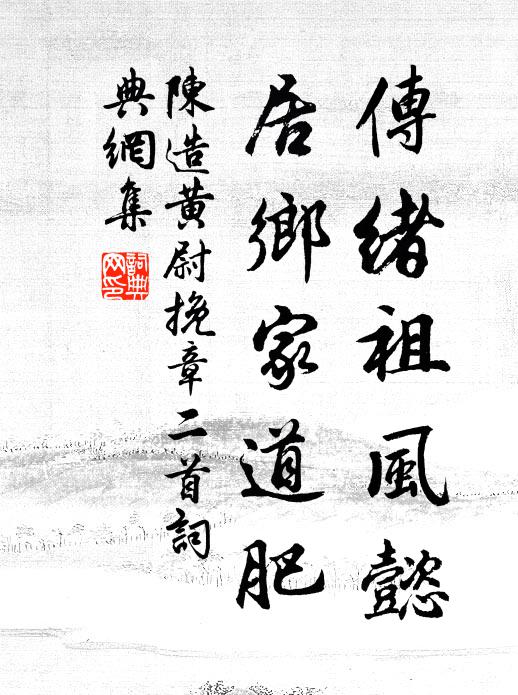 傳緒祖風懿
居鄉家道肥
陳造黃尉挽章二首詞
典網集
詞典
网印